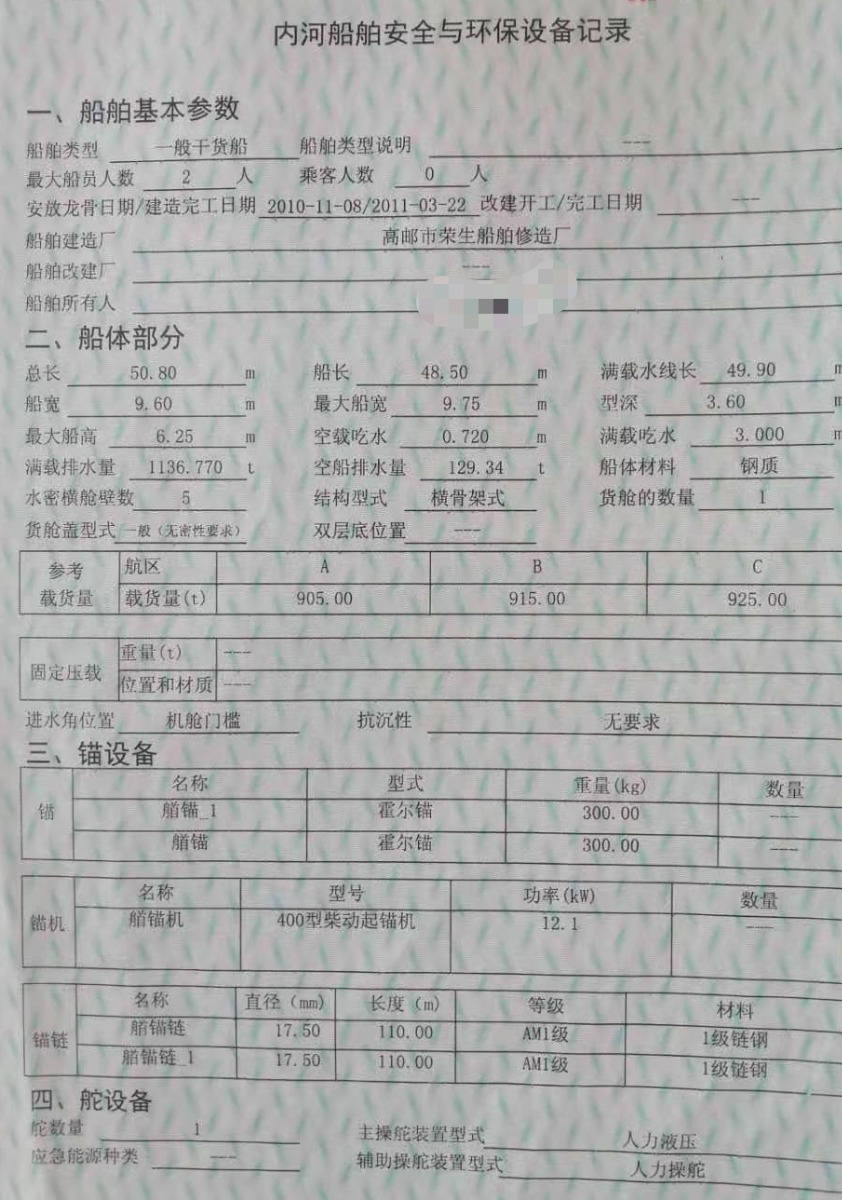 内河船舶安全与环保设备记录
一、船舶基本参数
船舶类型 一般干货船 船舶类型说明 ---
最大船员人数 2 人 乘客人数 0 人
安放龙骨日期/建造完工日期 2010-11-08/2011-03-22 改建开工/完工日期 ---
船舶建造厂 高邮市荣生船舶修造厂
船舶改建厂 ---
船舶所有人
二、船体部分
总长 50.80 m 船长 48.50 m 满载水线长 49.90 m
船宽 9.60 m 最大船宽 9.75 m 型深 3.60 m
最大船高 6.25 m 空载吃水 0.720 m 满载吃水 3.000 m
满载排水量 1136.770 t 空船排水量 129.34 t 船体材料 钢质
水密横舱壁数 5 结构型式 横骨架式 货舱的数量 1
货舱盖型式 一般（无密性要求） 双层底位置 ---
参考载货量 航区 A B C
载货量(t) 905.00 915.00 925.00
固定压载 重量(t) ---
位置和材质 ---
进水角位置 机舱门槛 抗沉性 无要求
三、锚设备
名称 型式 重量(kg) 数量
锚 艏锚_1 霍尔锚 300.00 ---
艏锚 霍尔锚 300.00 ---
名称 型号 功率(kW) 数量
锚机 艏锚机 400型柴动起锚机 12.1 ---
名称 直径（mm） 长度（m） 等级 材料
锚链 艏锚链 17.50 110.00 AM1级 1级链钢
艏锚链_1 17.50 110.00 AM1级 1级链钢
四、舵设备
舵数量 1 主操舵装置型式 人力液压
应急能源种类 --- 辅助操舵装置型式 人力操舵